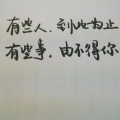 有些人,到此为止
有些事,由不得你